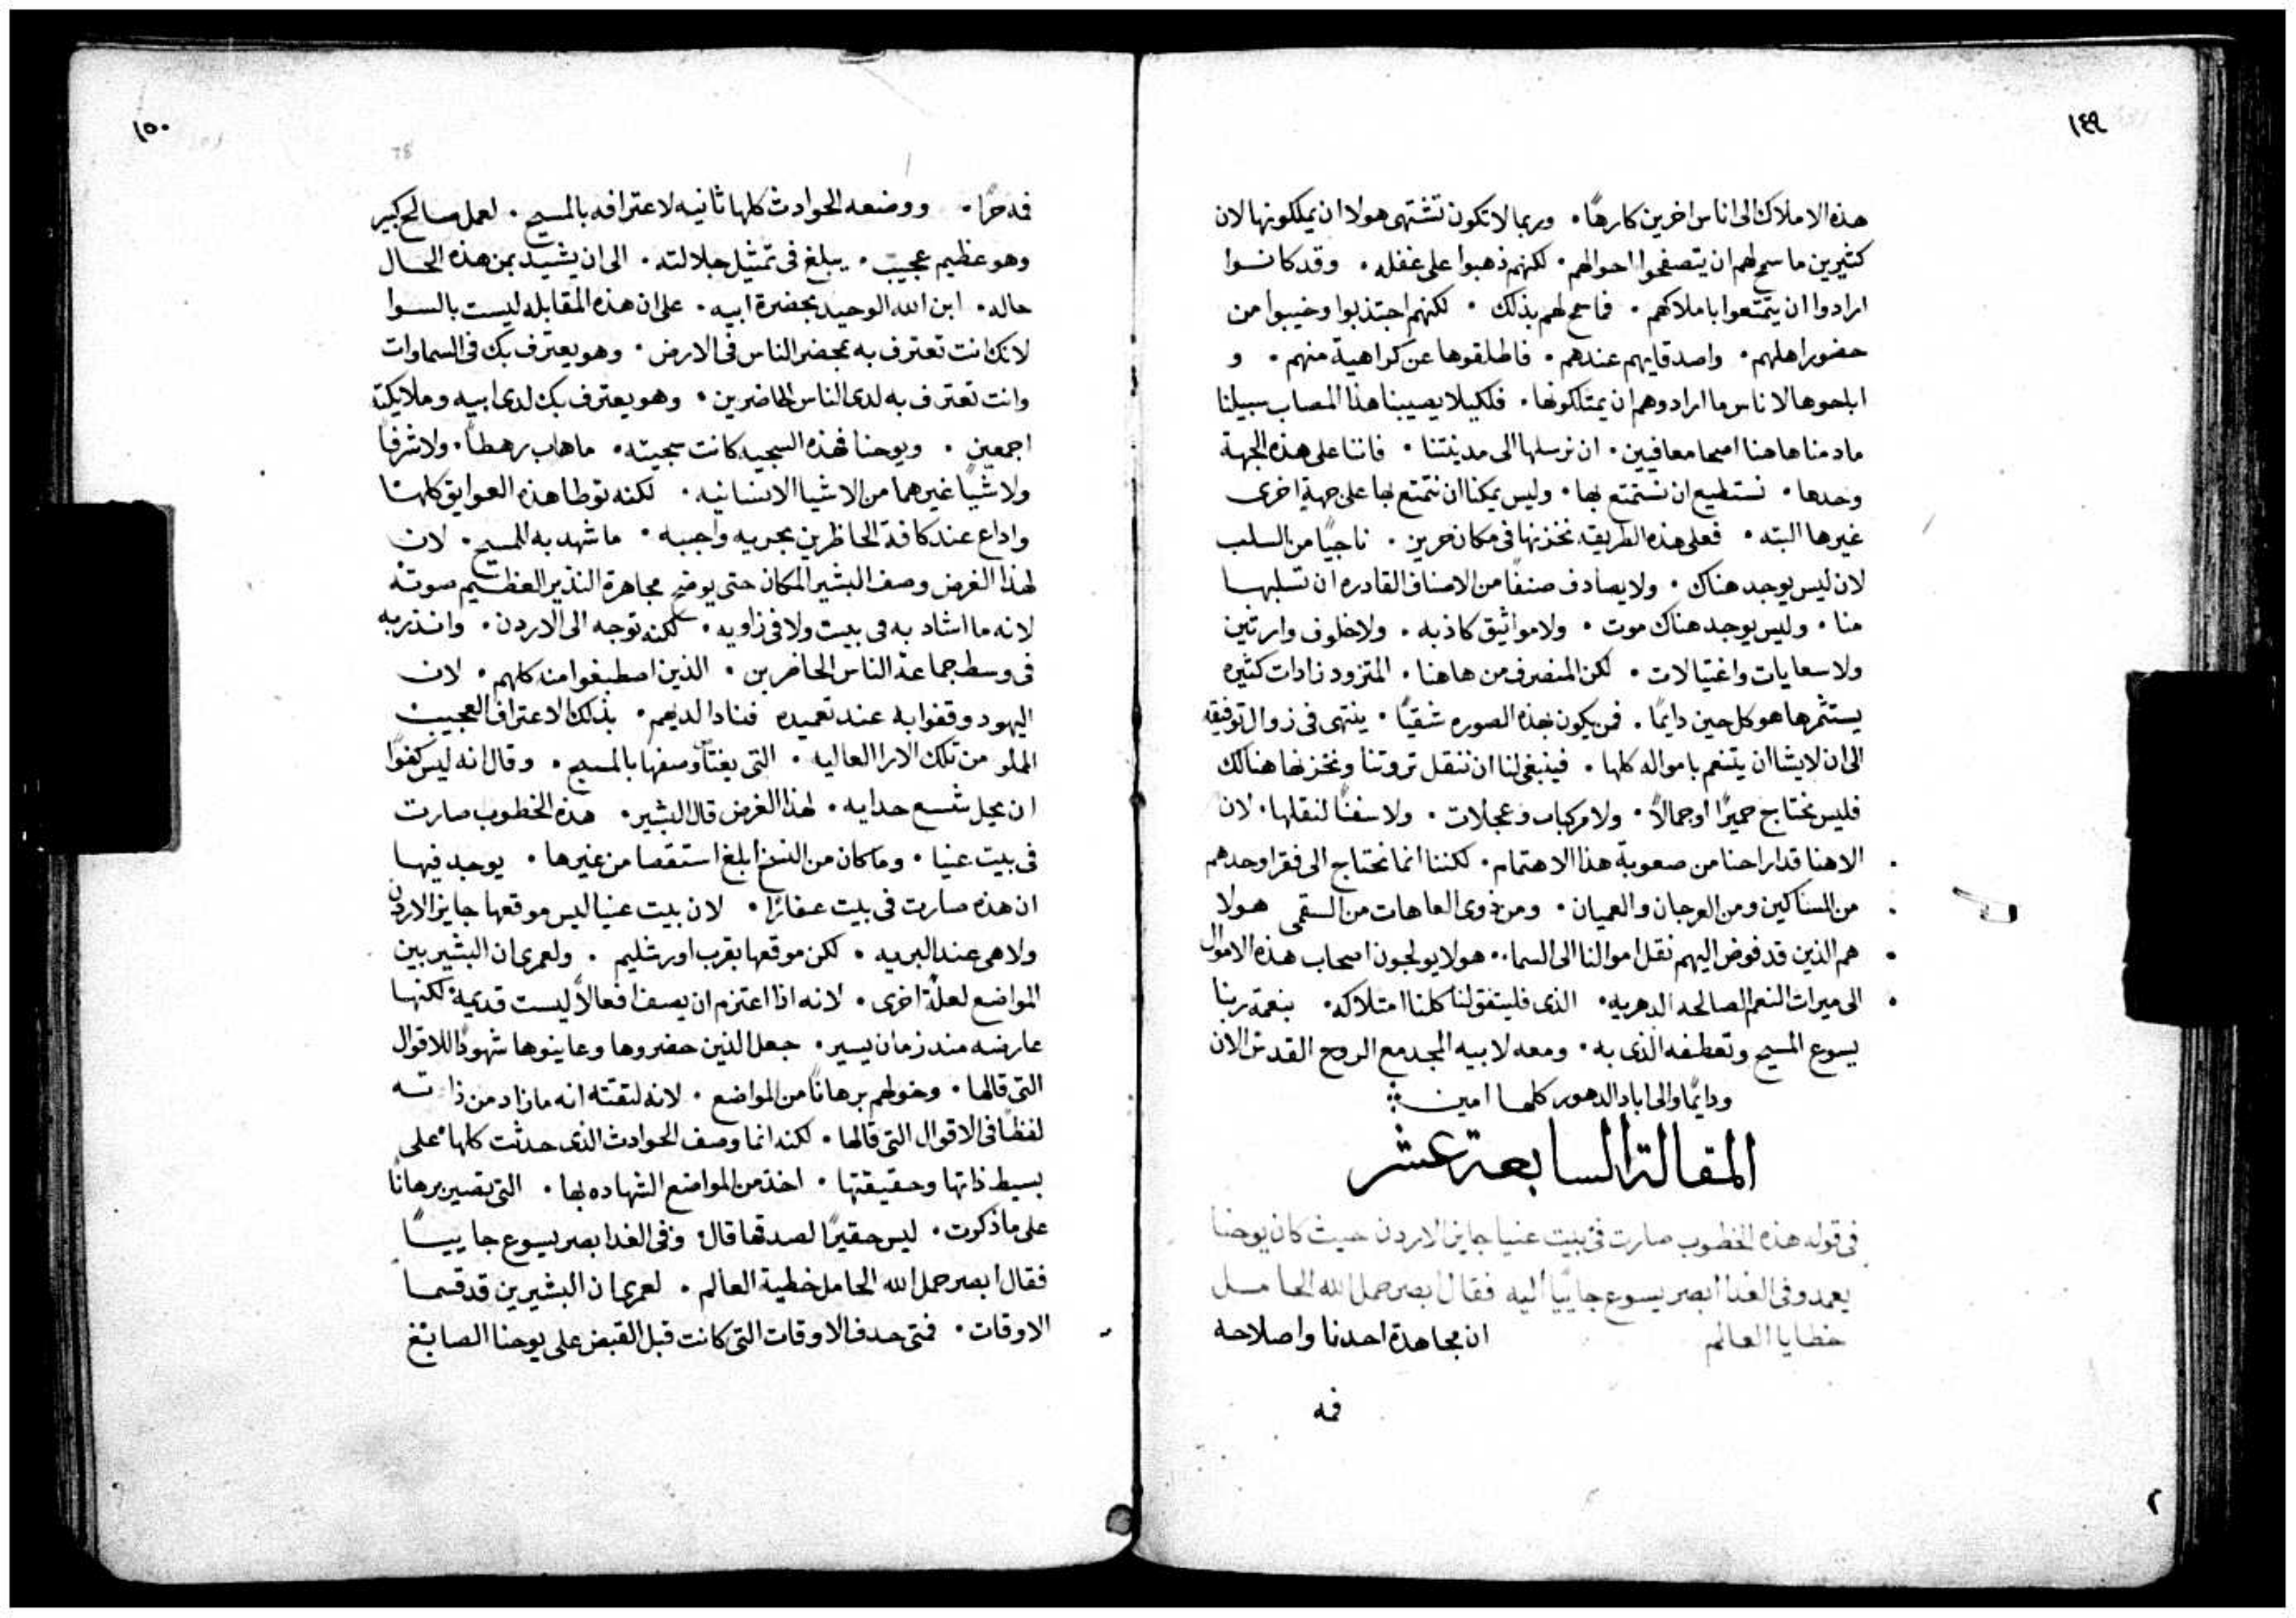 ١٤٩
هذه الاملاك الى اناس اخرين كارهًا. وربما لا تكون تشتهى هولا ان يملكونها لان
كثيرين ما سمح لهم ان يتصفحوا احوالهم. لكنهم ذهبوا على غفله. وقد كانوا
ارادوا ان يتمتعوا باملاكهم. فما سمح لهم بذلك. لكنهم اجتذبوا وخيبوا من
حضور اهلهم. واصدقايهم عندهم. فاطلقوها عن كراهية منهم. و
اباحوها لاناس ما ارادوهم ان يمتلكونها. فلكيلا يصيبنا هذا المصاب سبيلنا
ما دمنا هاهنا اصحا معافيين. ان نرسلها الى مدينتنا. فاننا على هذه الجهة
وحدها. نستطيع ان نستمتع بها. وليس يمكنا ان نتمتع بها على جهة اخرى
غيرها البته. فعلى هذه الطريقه نخزنها فى مكان حريز. ناجيًا من السلب
لان ليس يوجد هناك. ولا يصادف صنفًا من الاصناف القادره ان تسلبها
منا. وليس يوجد هناك موت. ولا مواثيق كاذبه. ولا خلوف وارثين
ولا سعايات واغتيالات. لكن المنصرف من هاهنا. المتزود زادات كثيره
يستثمرها هو كل حين دايمًا. فمن يكون بهذه الصوره شقيًا. ينتهى فى زوال توفيقه
الى ان لا يشا ان يتنعم باموله كلها. فينبغى لنا ان ننقل ثروتنا ونخزنها هنالك
فليس نحتاج حميرًا او جمالًا. ولا مركبات وعجلات. ولا سفنًا لنقلها. لان
الاهنا قد اراحنا من صعوبة هذا الاهتمام. لكننا انما نحتاج الى فقرا وحدهم
من المساكين ومن العرجان والعميان. ومن ذوى العاهات من السقمى هولا
هم الذين قد فوض اليهم نقل اموالنا الى السما. هولا يولجون اصحاب هذه الاموال
الى ميراث النعم الصالحه الدهريه. الذى فليتفق لنا كلنا امتلاكه. بنعمة ربنا
يسوع المسيح وتعطفه الذى به. ومعه لابيه المجد مع الروح القدس الان
ودايمًا والى اباد الدهور كلها امين
المقالة السابعة عشر
فى قوله هذه الخطوب صارت فى بيت عنيا جايز الاردن حيث كان يوحنا
يعمد وفى الغدا ابصر يسوع جاييًا اليه فقال ابصر حمل الله الحامل
خطايا العالم ان مجاهدة احدنا واصلاحه
فمه
١٥٠
فمه حرًا. ووضعه الحوادث كلها ثانيه لاعترافه بالمسيح. لعمل صالح كبير
وهو عظيم عجيب. يبلغ فى تمثيل جلالته. الى ان يشيد بمن هذه الحال
حاله. ابن الله الوحيد بحضرة ابيه. على ان هذه المقابله ليست بالسوا
لانك انت تعترف به بمحضر الناس فى الارض. وهو يعترف بك فى السماوات
وانت تعترف به لدى الناس الحاضرين. وهو يعترف بك لدى ابيه وملايكته
اجمعين. ويوحنا فهذه السجيه كانت سجيته. ما هاب رهطًا. ولا شرفًا
ولا شيًا غيرهما من الاشيا الانسانيه. لكنه توطا هذه العوايق كلها
واداع عند كافة الحاظرين بحريه واجبه. ما شهد به للمسيح. لان
لهذا الغرض وصف البشير المكان حتى يوضح مجاهرة النذير العظيم صوته
لانه ما اشاد به فى بيت ولا فى زاويه. لكنه توجه الى الاردن. وانذر به
فى وسط جماعة الناس الحاضرين. الذين اصطبغوا منه كلهم. لان
اليهود وقفوا به عند تعميده فنادا لديهم. بذلك الاعتراف العجيب
المملو من تلك الارا العاليه. التى وصفها بالمسيح. وقال انه ليس كفوًا
ان يحل شسع حدايه. لهذا الغرض قال البشير. هذه الخطوب صارت
فى بيت عنيا. وما كان من النسخ ابلغ استقصا من غيرها. يوجد فيها
ان هذه صارت فى بيت عفارًا. لان بيت عنيا ليس موقعها جايز الاردن
ولا هى عند البريه. لكن موقعها بقرب اورشليم. ولعمرى ان البشير بين
المواضع لعلةٍ اخرى. لانه اذا اعتزم ان يصف افعالًا ليست قديمة لكنها
عارضه مند زمان يسير. جعل الذين حضروها وعاينوها شهودًا للاقوال
التى قالها. وخولهم برهانًا من المواضع. لانه لثقته انه ما زاد من ذاته
لفظًا فى الاقوال التى قالها. لكنه انما وصف الحوادث الذى حدثت كلها على
بسيط ذاتها وحقيقتها. اخذ من المواضع الشهاده بها. التى تصير برهانًا
على ما ذكرت. ليس حقيرًا لصدقها قال وفى الغد ابصر يسوع جاييًا
فقال ابصر حمل الله الحامل خطية العالم. لعمرى ان البشيرين قد قسما
الاوقات. فمتى حدف الاوقات التى كانت قبل القبض على يوحنا الصابغ